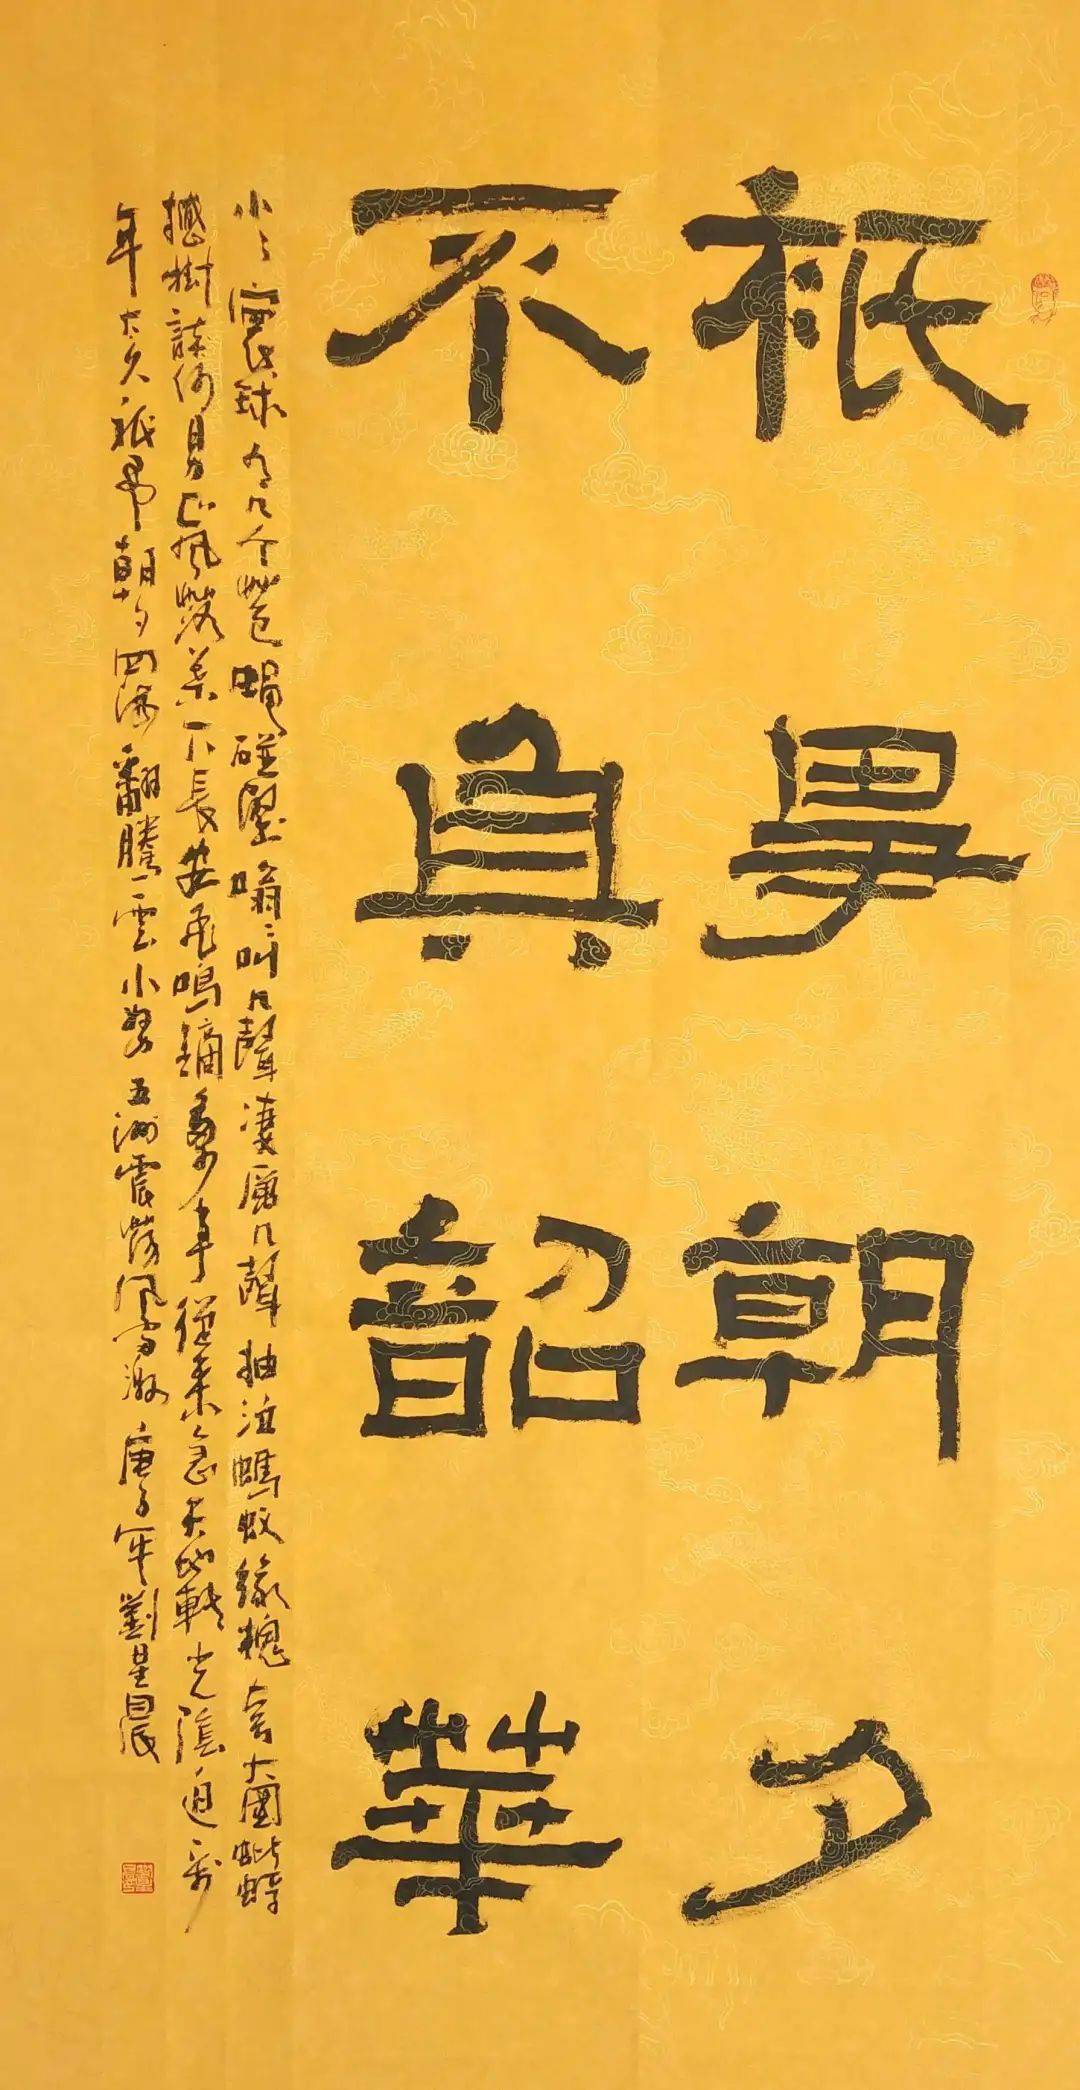 祇爭朝夕
不負韶華
小小寰球有几个蒼蠅碰壁嗡嗡叫几聲凄厲几聲抽泣螞蚁緣槐夸大國蚍蜉
撼樹談何易正西風落葉下長安飛鳴鏑多少事從來急天地轉光陰迫一万
年太久祇爭朝夕四海翻騰雲水怒五洲震蕩風雷激庚子年劉星晨